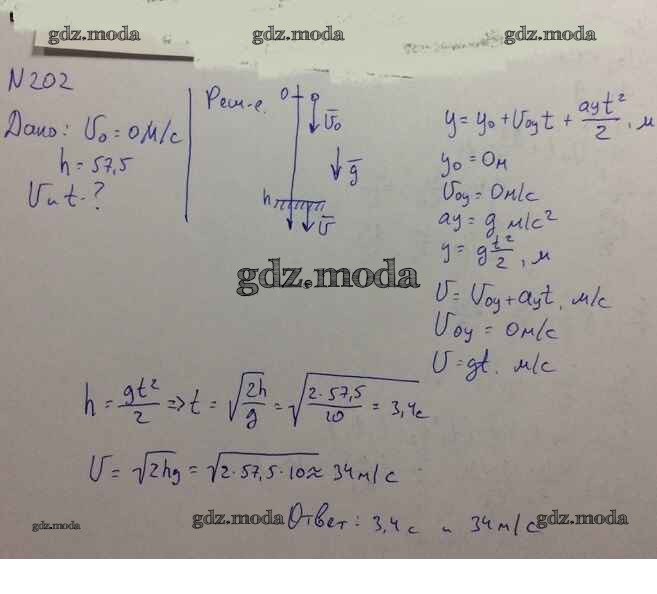 gdz.moda gdz.moda gdz.moda
N202
Дано: V₀ = 0м/с
h = 57,5
V и t - ?
Реш-е.
0
V̄₀
ḡ
h
V̄
y = y₀ + V₀yt + ayt²/2, м
y₀ = 0м
V₀y = 0м/с
ay = g м/с²
y = gt²/2, м
V = V₀y + ayt, м/с
V₀y = 0м/с
V = gt, м/с
gdz.moda
h = gt²/2 => t = √(2h/g) = √(2·57,5/10) = 3,4с
V = √2hg = √2·57,5·10 ≈ 34м/с
Ответ: 3,4с и 34м/с
gdz.moda gdz.moda gdz.moda